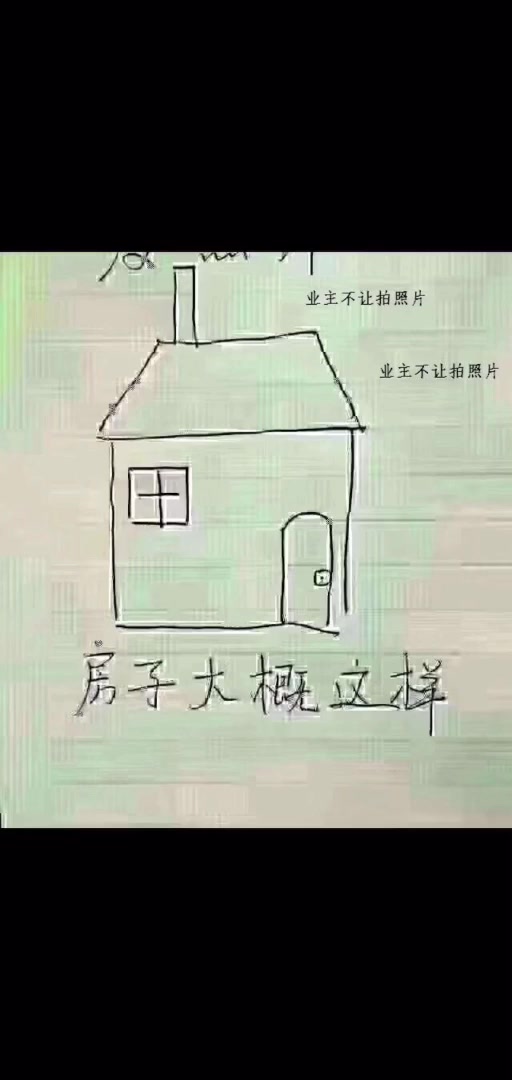 业主不让拍照片
业主不让拍照片
房子大概这样